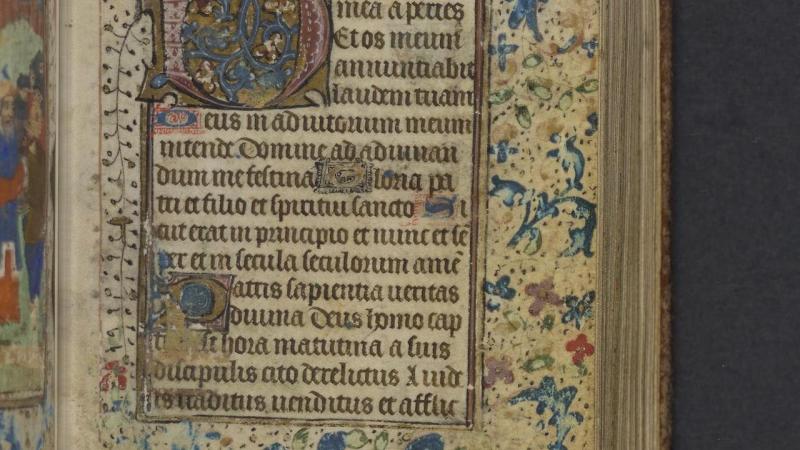 mea aperies
Et os meum
annuntiabit
laudem tuam
Deus in adiutorium meum
intende Domine ad adiuuan
dum me festina Gloria pa
tri et filio et spiritui sancto Si
cut erat in principio et nunc et sē
per et in secula seculorum amē
Patris sapientia ueritas
diuina Deus homo cap
tus est hora matutina a suis
discipulis cito derelictus A iude
is traditus uenditus et afflic